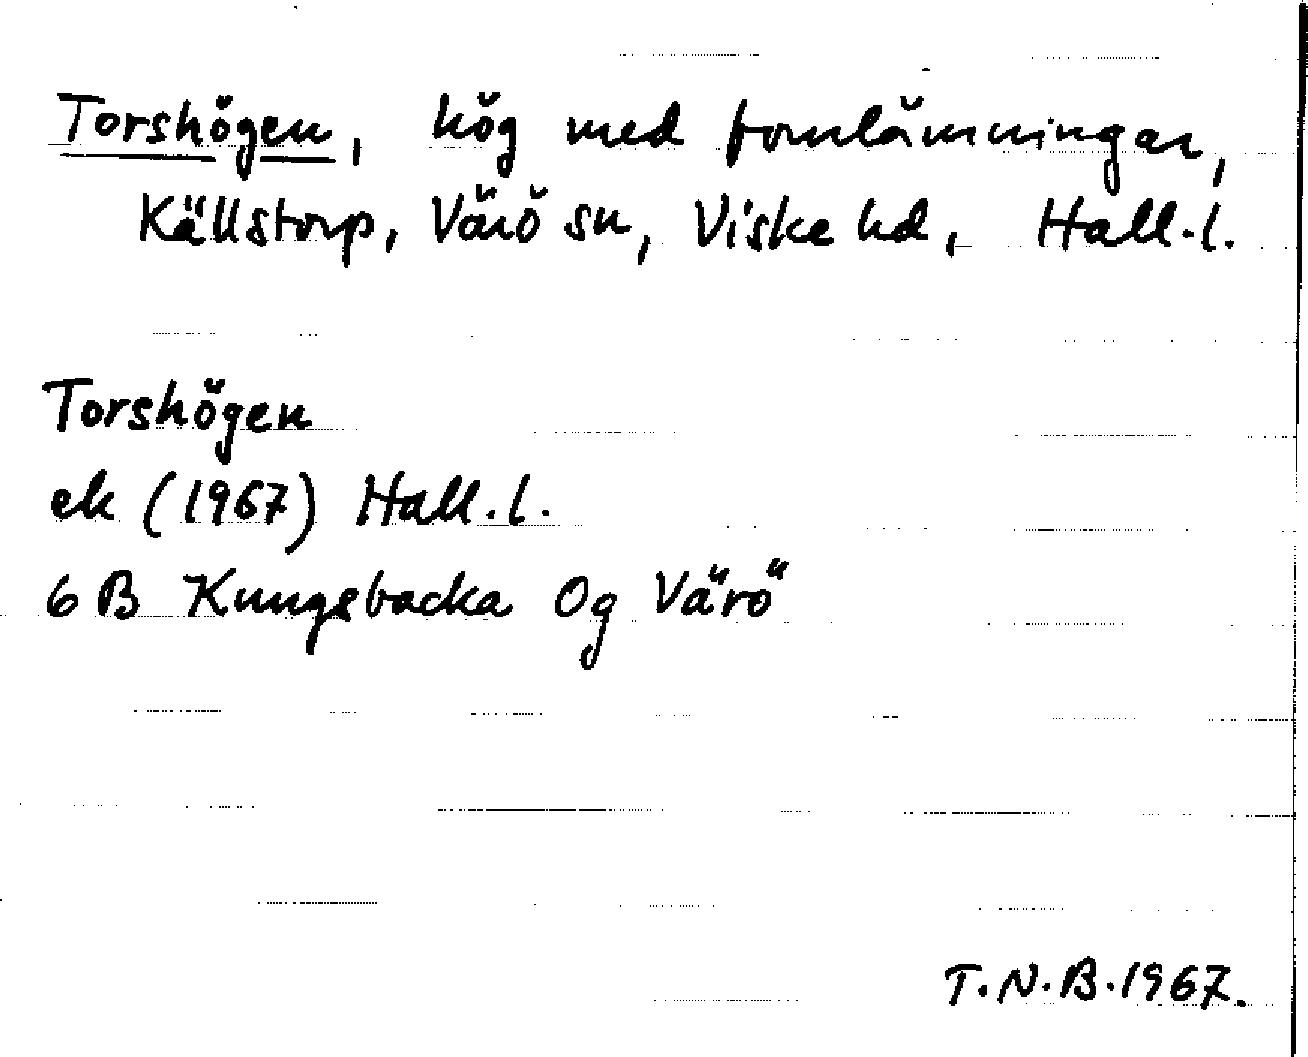 Torshögen, hög med fornlämningar,
Källstorp, Värö sn, Viske hd, Hall.l.
Torshögen
ek (1967) Hall.l.
6 B Kungsbacka 0g Värö
T.N.B.1967.